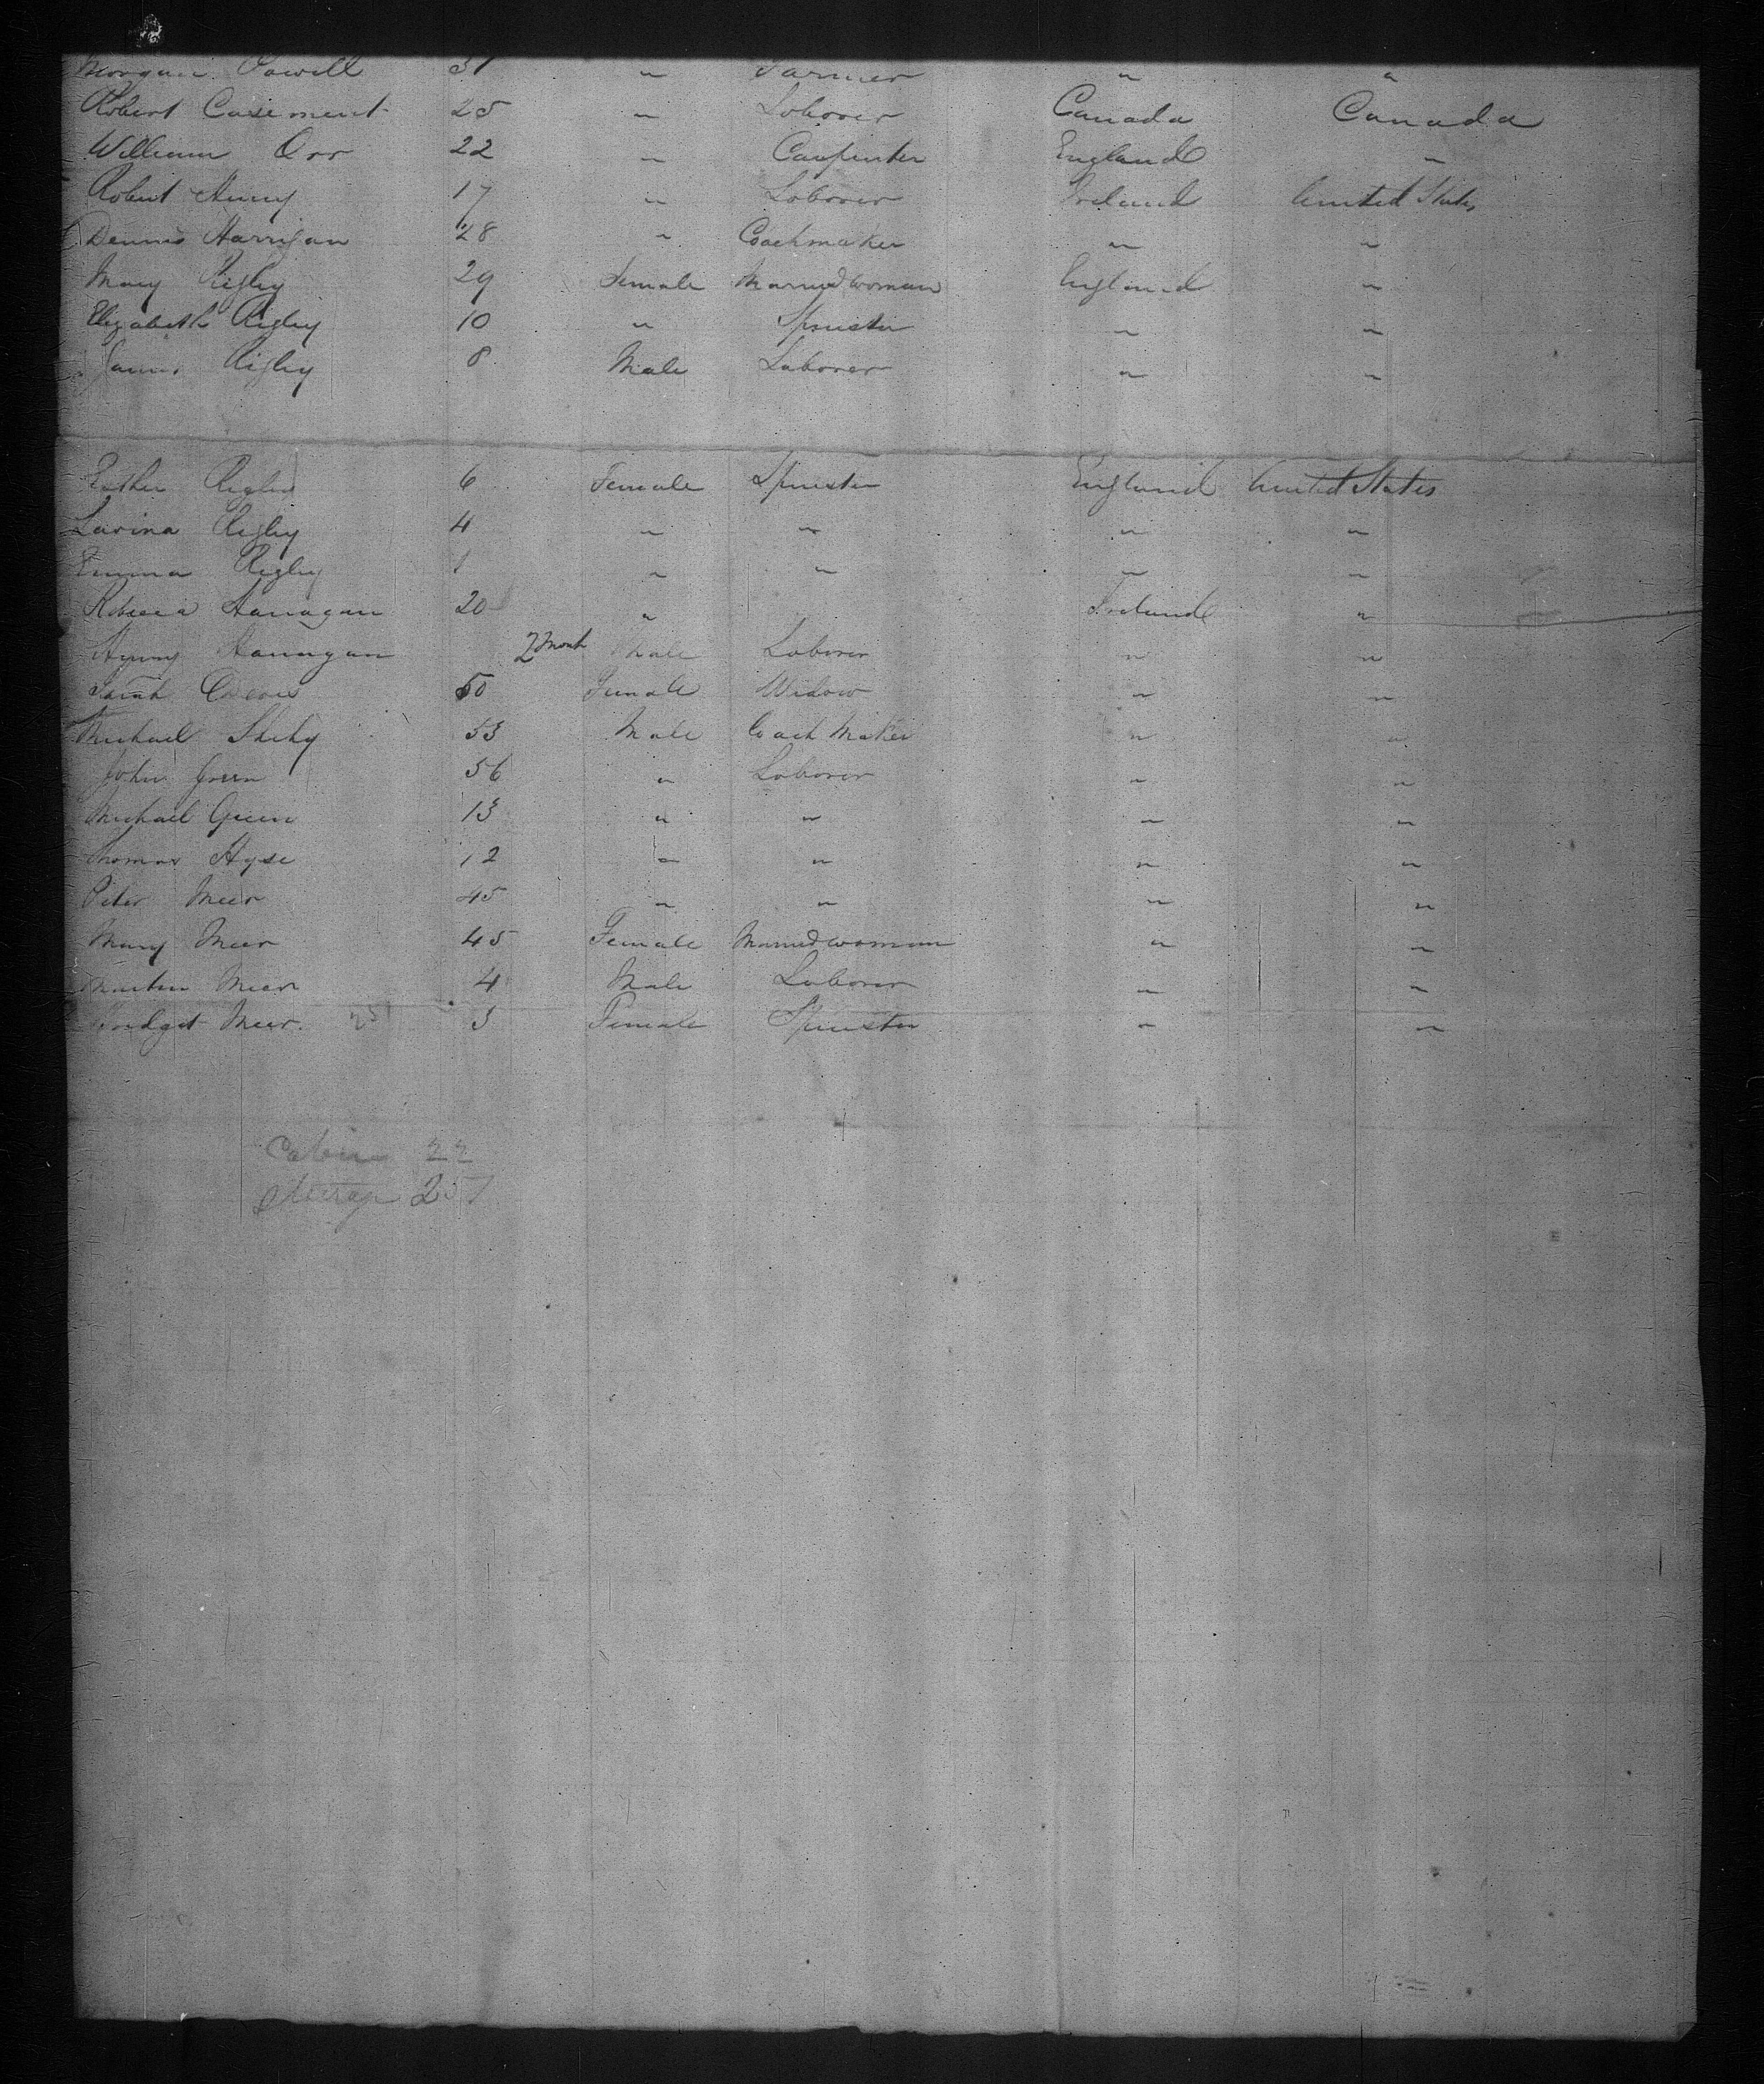 Morgan Powell 31 " Farmer " "
Robert Casement 25 " Laborer Canada Canada
William Orr 22 " Carpenter England "
Robert Henry 17 " Laborer Ireland United States
Dennis Harrigan 28 " Coachmaker " "
Mary Rigby 29 Female Married woman England "
Elizabeth Rigby 10 " Spinster " "
James Rigby 8 Male Laborer " "
Esther Rigby 6 Female Spinster England United States
Lavina Rigby 4 " " " "
Emma Rigby 1 " " " "
Rebecca Hanagan 20 " Ireland "
Hanagan 2 Month Male Laborer " "
Sarah 50 Female Widow " "
Michael Shehy 53 Male Coach Maker " "
John Green 56 " Laborer " "
Michael Green 13 " " " "
Thomas Hyse 12 " " " "
Peter Meer 45 " " " "
Mary Meer 45 Female Married woman " "
Martin Meer 4 Male Laborer " "
Bridget Meer. 251 3 Female Spinster " "
Cabin 22
Steerage 251